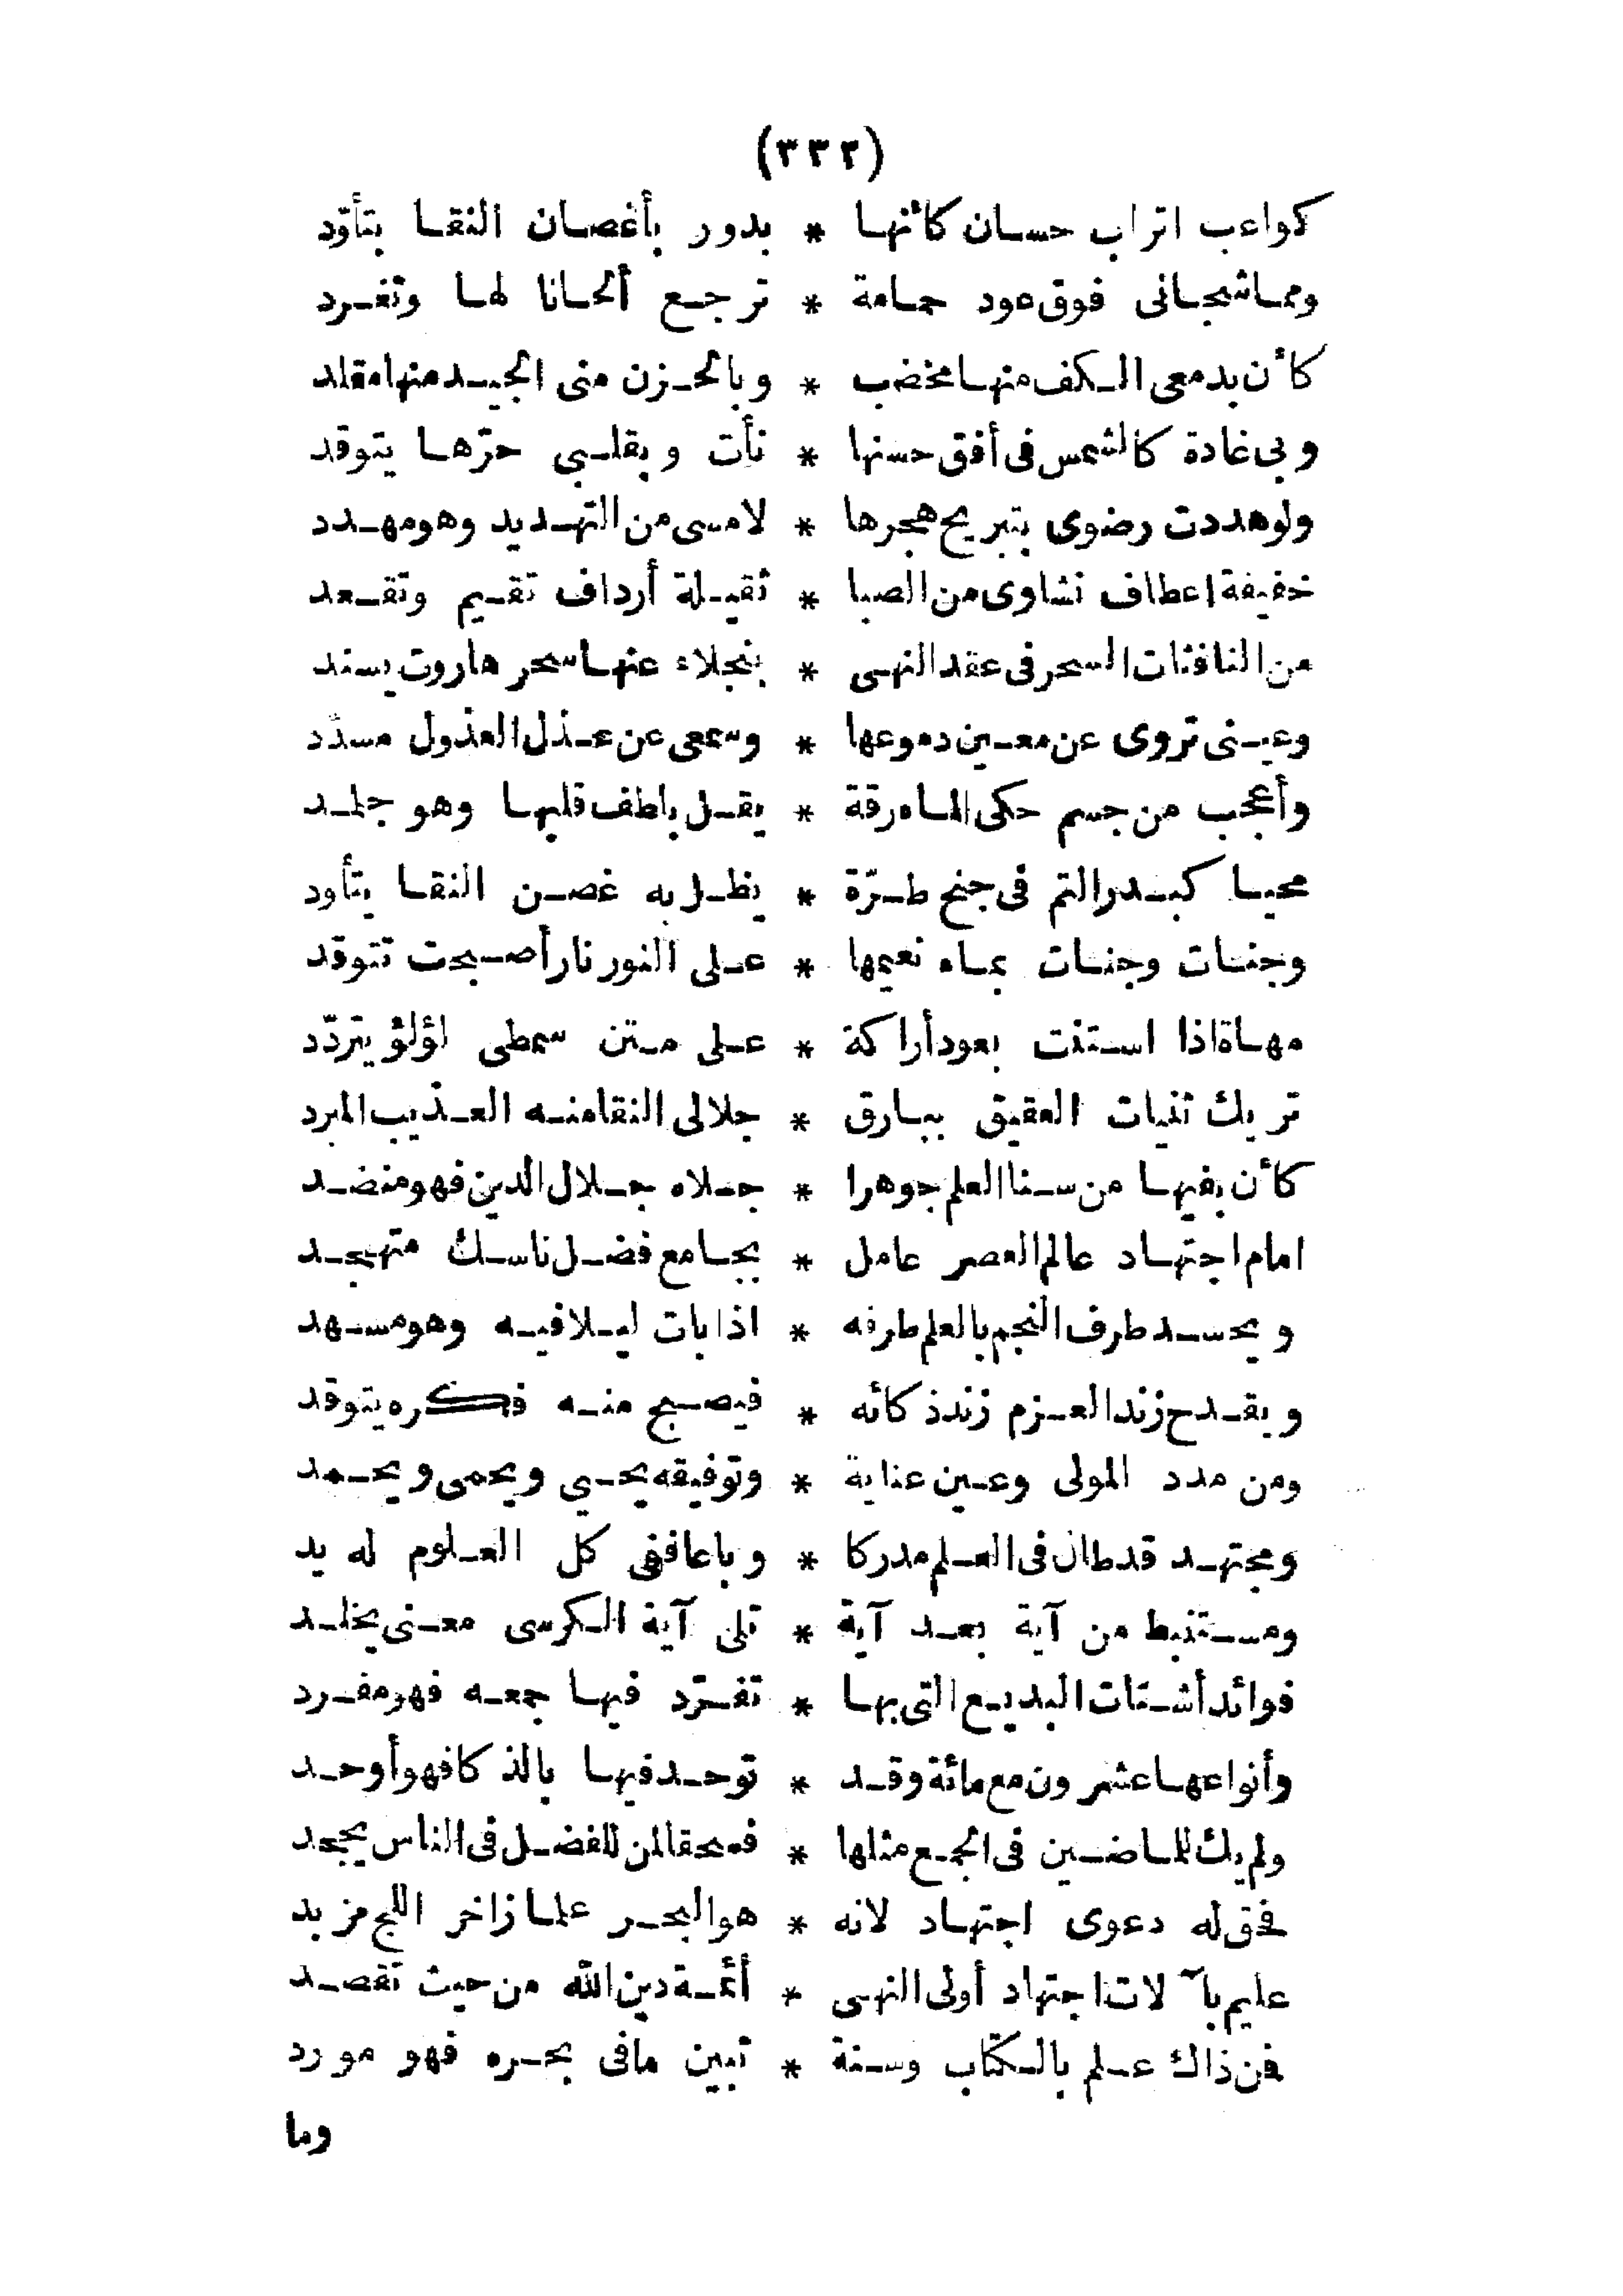 (٣٣٢)
كواعب اتراب حسان كأنها * بدور بأغصان النقا يتأوّد
ومما شجانى فوق عود حمامة * ترجع ألحانا لها وتغرد
كأن بدمعى الكف منها مخضب * وبالحزن منى الجيد منها مقلد
وبى غادة كالشمس فى أفق حسنها * نأت وبقلبى حرّها يتوقد
ولو هددت رضوى بتبريح هجرها * لامسى من التهديد وهو مهدد
خفيفة اعطاف نشاوى من الصبا * ثقيلة أرداف تقيم وتقعد
من النافثات السحر فى عقد النهى * بنجلاء عنها سحر هاروت يسند
وعينى تروى عن معين دموعها * وسمعى عن عذل العذول مسدّد
وأعجب من جسم حكى الماء رقة * يقل بلطف قلبها وهو جلمد
محيا كبدر التم فى جنح طرّة * يظل به غصن النقا يتأود
وجنات وجنات بماء نعيمها * على النور نار أصبحت تتوقد
مهاة اذا استنت بعود أراكة * على متن سمطى لؤلؤ يتردّد
تريك ثنيات العقيق ببارق * جلالى النقا منه العذيب المبرد
كأن بفيها من سنا العلم جوهرا * جلاه جلال الدين فهو منضد
امام اجتهاد عالم العصر عامل * بجامع فضل ناسك متهجد
ويحسد طرف النجم بالعلم طرفه * اذا بات ليلا فيه وهو مسهد
ويقدح زند العزم زند ذكائه * فيصبح منه فكره يتوقد
ومن مدد المولى وعين عناية * وتوفيقه يحيى ويحمى ويحمد
ومجتهد قد طال فى العلم مدركا * وباعا ففى كل العلوم له يد
ومستنبط من آية بعد آية * تلى آية الكرسى معنى يخلد
فوائد أشتات البديع التى بها * تفرّد فيها جمعه فهو مفرد
وأنواعها عشرون مع مائة وقد * توحد فيها بالذكا فهو أوحد
ولم يك للماضين فى الجمع مثلها * فمحقا لمن للفضل فى الناس يجحد
فحق له دعوى اجتهاد لانه * هو البحر علما زاخر اللج مزبد
عليم بآلات اجتهاد أولى النهى * أئمة دين الله من حيث تقصد
فمن ذاك علم بالكتاب وسنة * تبين ما فى بحره فهو مورد
وما